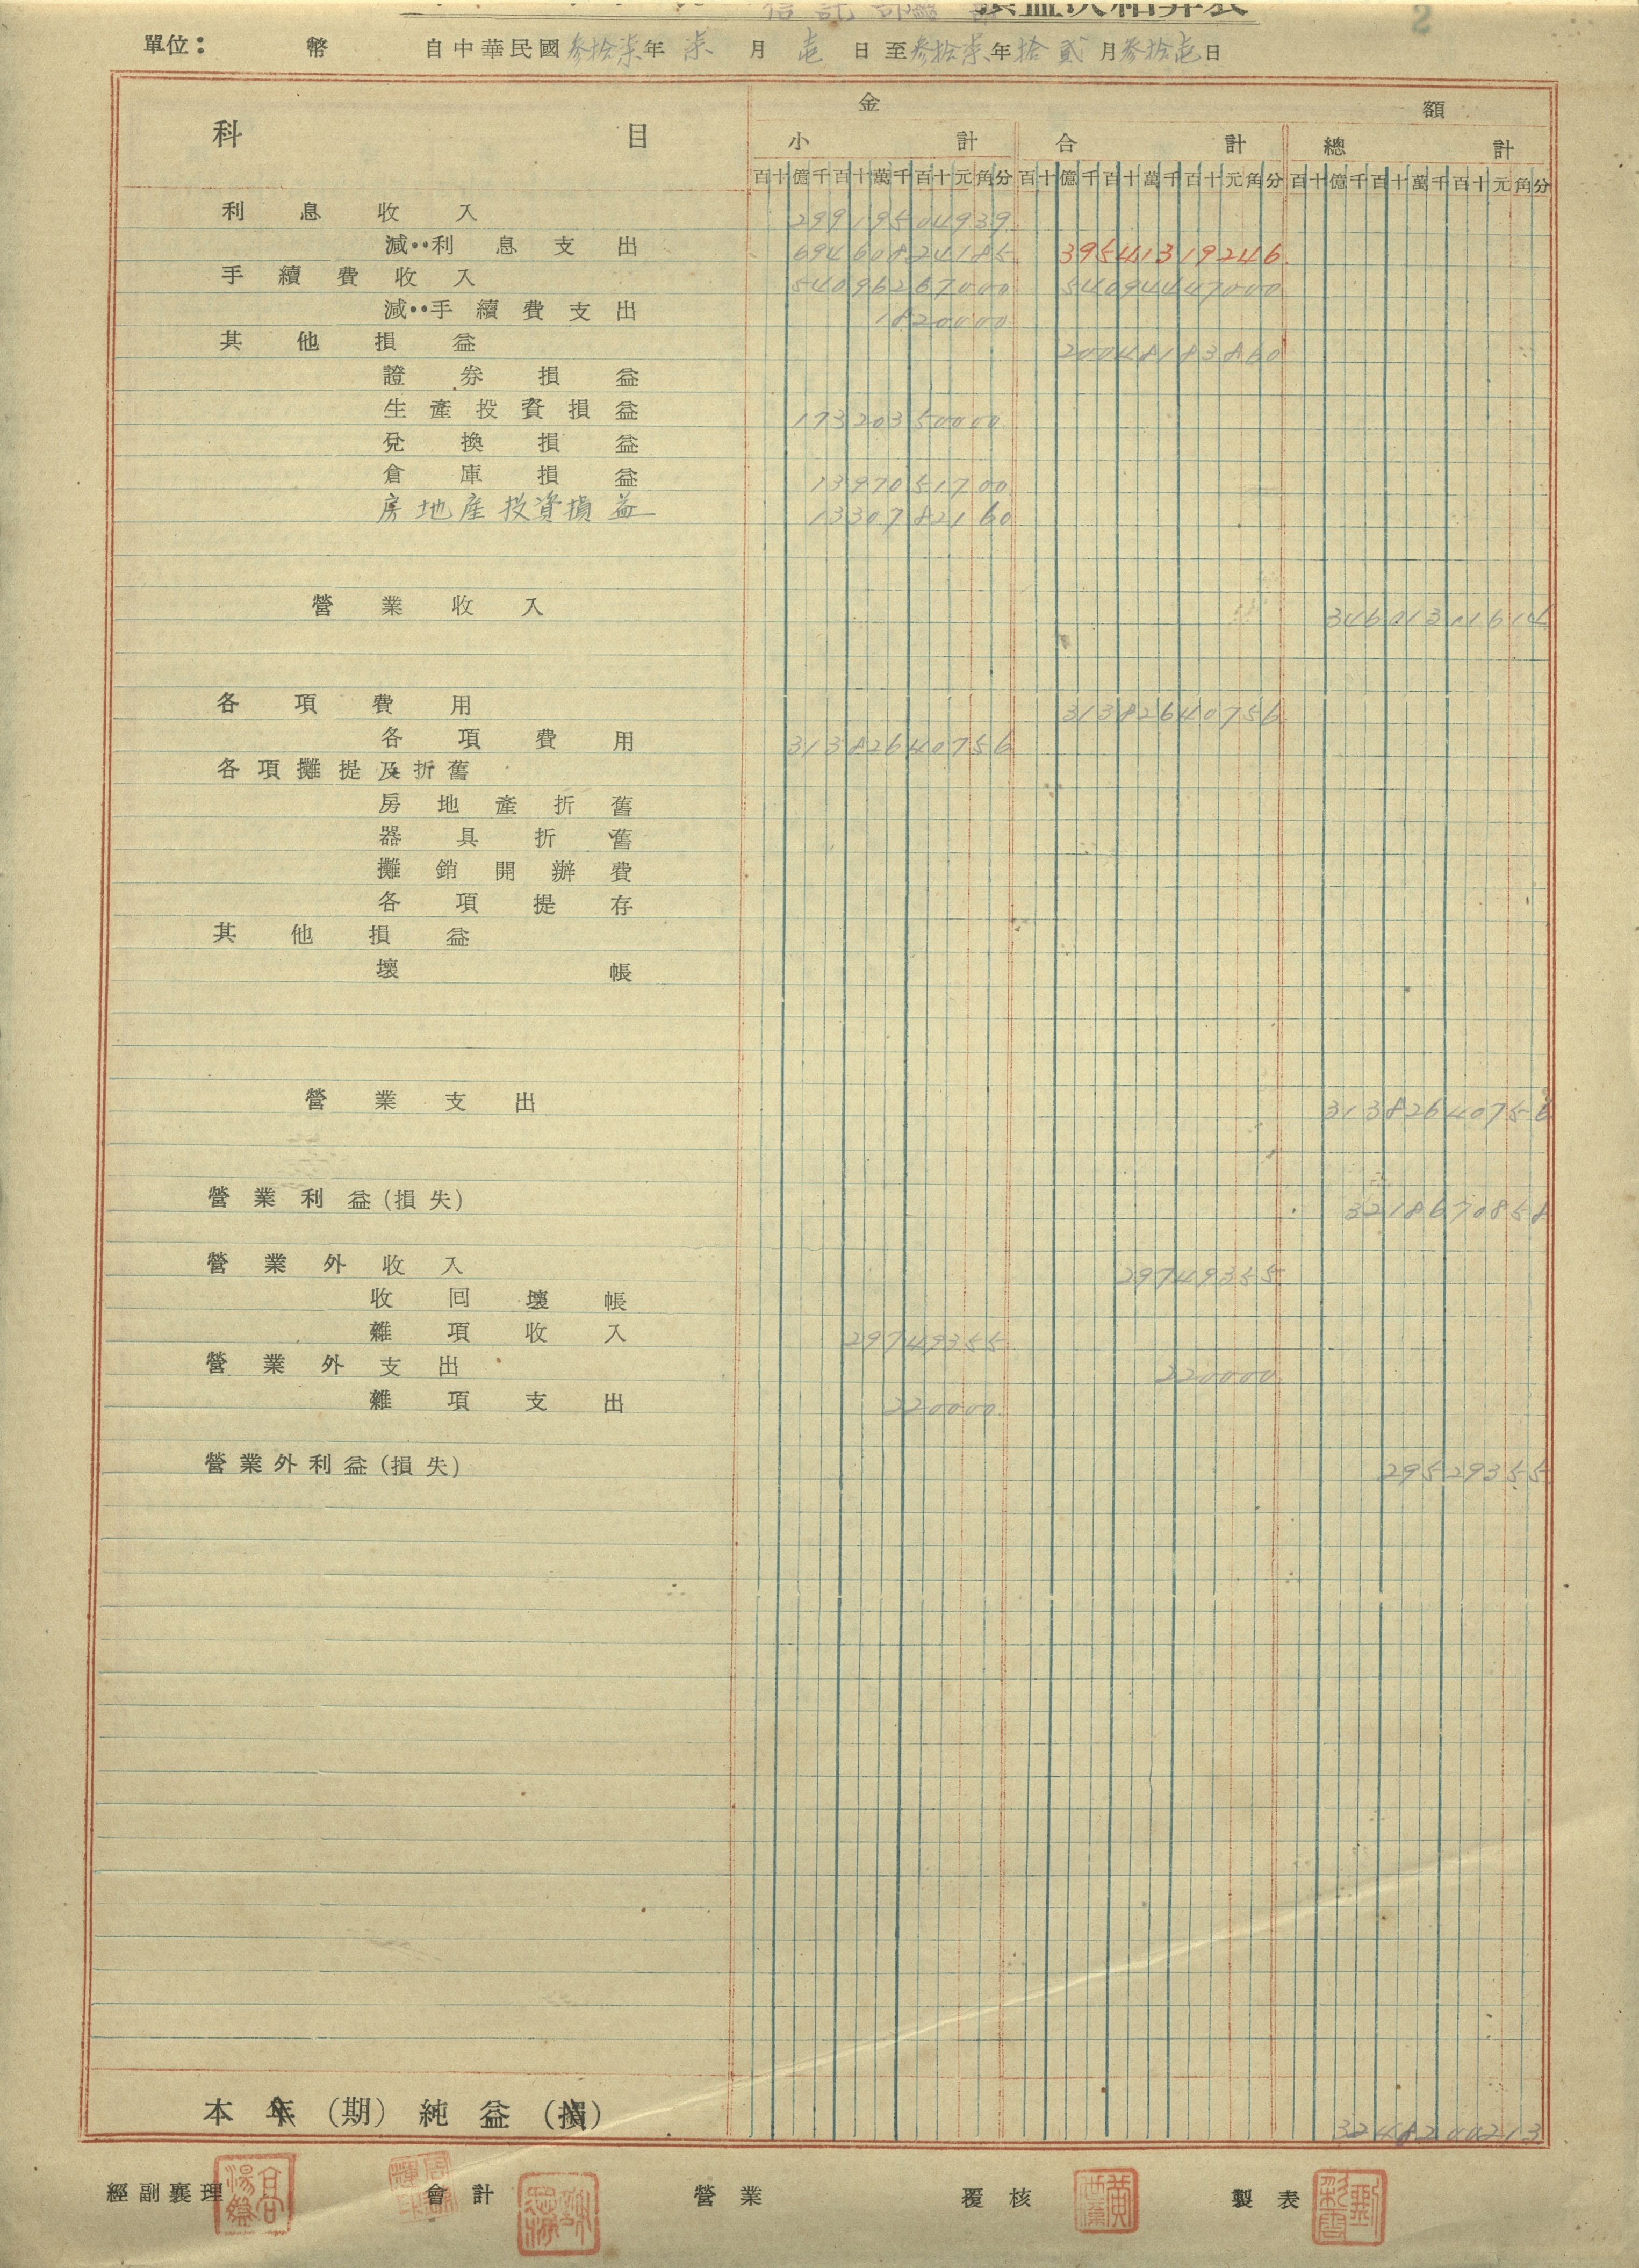 單位： 幣 自中華民國叁拾柒年柒月壱日至叁拾柒年拾貳月叁拾壱日
2
科目 金額
小計 合計 總計
百十億千百十萬千百十元角分 百十億千百十萬千百十元角分 百十億千百十萬千百十元角分
利息收入 29919504939
減：利息支出 69460824185 39541319246
手續費收入 54096267000 54094447000
減：手續費支出 1820000
其他損益 20048183860
證券損益
生產投資損益 17320350000
兌換損益
倉庫損益 1397051700
房地產投資損益 1330782160
營業收入 34601311614
各項費用 31382640756
各項費用 31382640756
各項攤提及折舊
房地產折舊
器具折舊
攤銷開辦費
各項提存
其他損益
壞帳
營業支出 31382640756
營業利益(損失) 3218670858
營業外收入 29749355
收回壞帳
雜項收入 29749355
營業外支出 220000
雜項支出 220000
營業外利益(損失) 29529355
本年(期)純益(損) 3248200213
經副襄理 會計 營業 覆核 製表